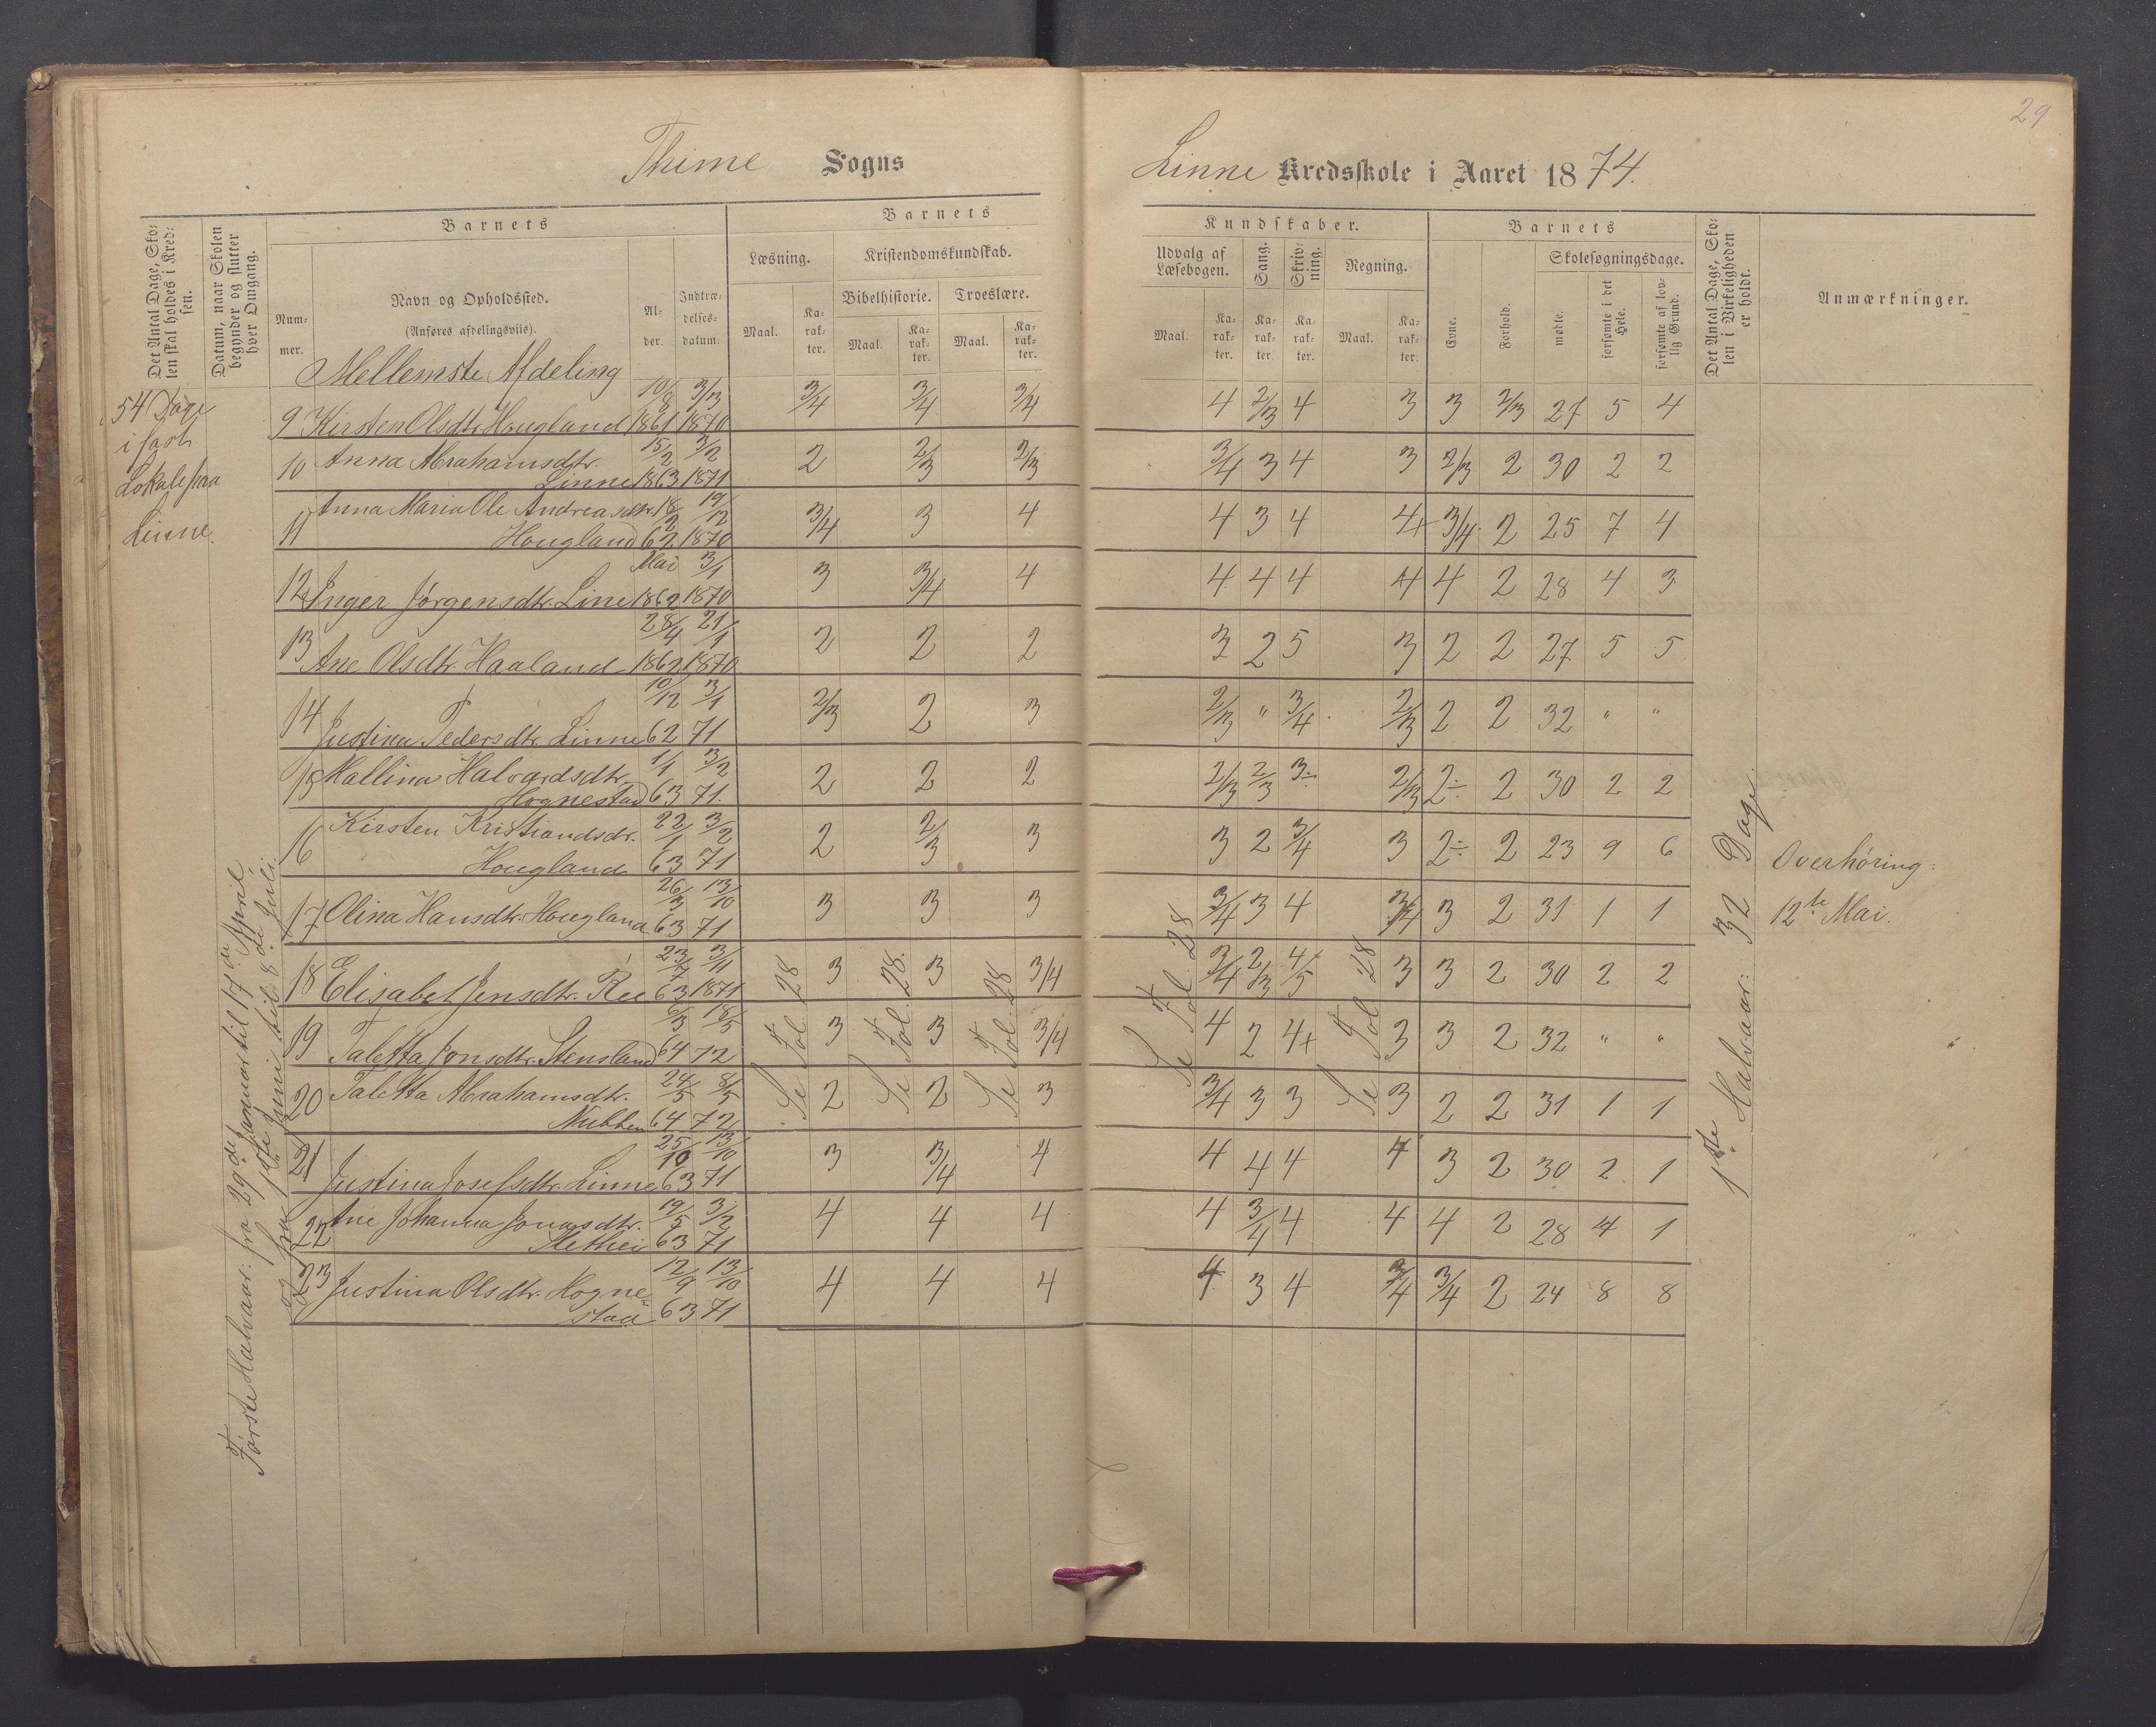 29
Thime Sogns
Linne Kredsskole i Aaret 1874.
Det Antal Dage, Skolen skal holdes i Kredsen.
Datum, naar Skolen begynder og slutter hver Omgang.
Barnets
Nummer.
Navn og Opholdssted.
(Anføres afdelingsviis).
Alder.
Indtrædelsesdatum.
Barnets
Læsning.
Kristendomskundskab.
Bibelhistorie.
Troeslære.
Maal.
Karakter.
Maal.
Karakter.
Maal.
Karakter.
Kundskaber.
Udvalg af Læsebogen.
Sang.
Skrivning.
Regning.
Maal.
Karakter.
Karakter.
Karakter.
Maal.
Karakter.
Barnets
Evne.
Forhold.
Skolesøgningsdage.
mødte.
forsømte i det Hele.
forsømte af lovlig Grund.
Det Antal Dage, Skolen i Virkeligheden er holdt.
Anmærkninger.
Mellemste Afdeling
54 Dage
i fast
Lokale paa
Linne.
Første Halvaar: fra 29de Januar til 17de April
og fra
juni til 8de Juli.
9 Kirsten Olsdtr. Hougland 10/8 1861 3/3 1870 3/4 3/4 3/4 4 2/3 4 3 3 2/3 27 5 4
10 Anna Abrahamsdtr. 15/2 3/2 2 2/3 2/3 3/4 3 4 3 2/3 2 30 2 2
Linne 1863 1871
11 Anna Maria Ole Andreasdtr. 18/2 19/12 3/4 3 4 4 3 4 4+ 3/4 2 25 7 4
Hougland 62 1870
12 Inger Jørgensdtr. Line Mai 1862 3/1 1870 3 3/4 4 4 4 4 4 4 2 28 4 3
13 Ane Olsdtr. Haaland 28/4 1862 21/1 1870 2 2 2 3 2 5 3 2 2 27 5 5
14 Justina Pedersdtr. Linne 10/12 62 3/1 71 2/3 2 3 2/3 " 3/4 2/3 2 2 32 " "
15 Mallina Halvardsdtr. 1/1 3/2 2 2 2 2/3 2/3 3÷ 2/3 2÷ 2 30 2 2
Hognestad 63 71.
16 Kirsten Kristiandsdr. 22/1 3/2 2 2/3 3 3 2 3/4 3 2÷ 2 23 9 6
Hougland 63 71
17 Olina Hansdtr. Hougland 26/3 63 13/10 71 3 3 3 3/4 3 4 3/4 3 2 31 1 1
18 Elisabet Jensdtr. Ree 23/7 63 3/11 1871 3 3 3/4 3/4 2/3 4/5 3 3 2 30 2 2
19 Taletta Jonsdtr. Stensland 6/3 64 18/5 72 3 3 3/4 4 2 4+ 3 3 2 32 " "
20 Taletta Abrahamsdtr. 24/5 8/5 2 2 3 3/4 3 3 3 2 2 31 1 1
Nubben 64 72
21 Justina Josefsdtr. Linne 25/10 63 13/10 71 3 3/4 4 4 4 4 4 3 2 30 2 1
22 Ane Johanna Jonasdtr. 19/5 3/2 4 4 4 4 3/4 4 4 4 2 28 4 1
Slethei 63 71
23 Justina Olsdtr. Hogne= 12/9 13/10 4 4 4 4 3 4 3/4 3/4 2 24 8 8
stad 63 71
Se Fol. 28
Se Fol. 28.
Se Fol. 28
Se Fol. 28
Se Fol. 28
1ste Halvaar: 32 Dage.
Overhøring:
12te Mai.